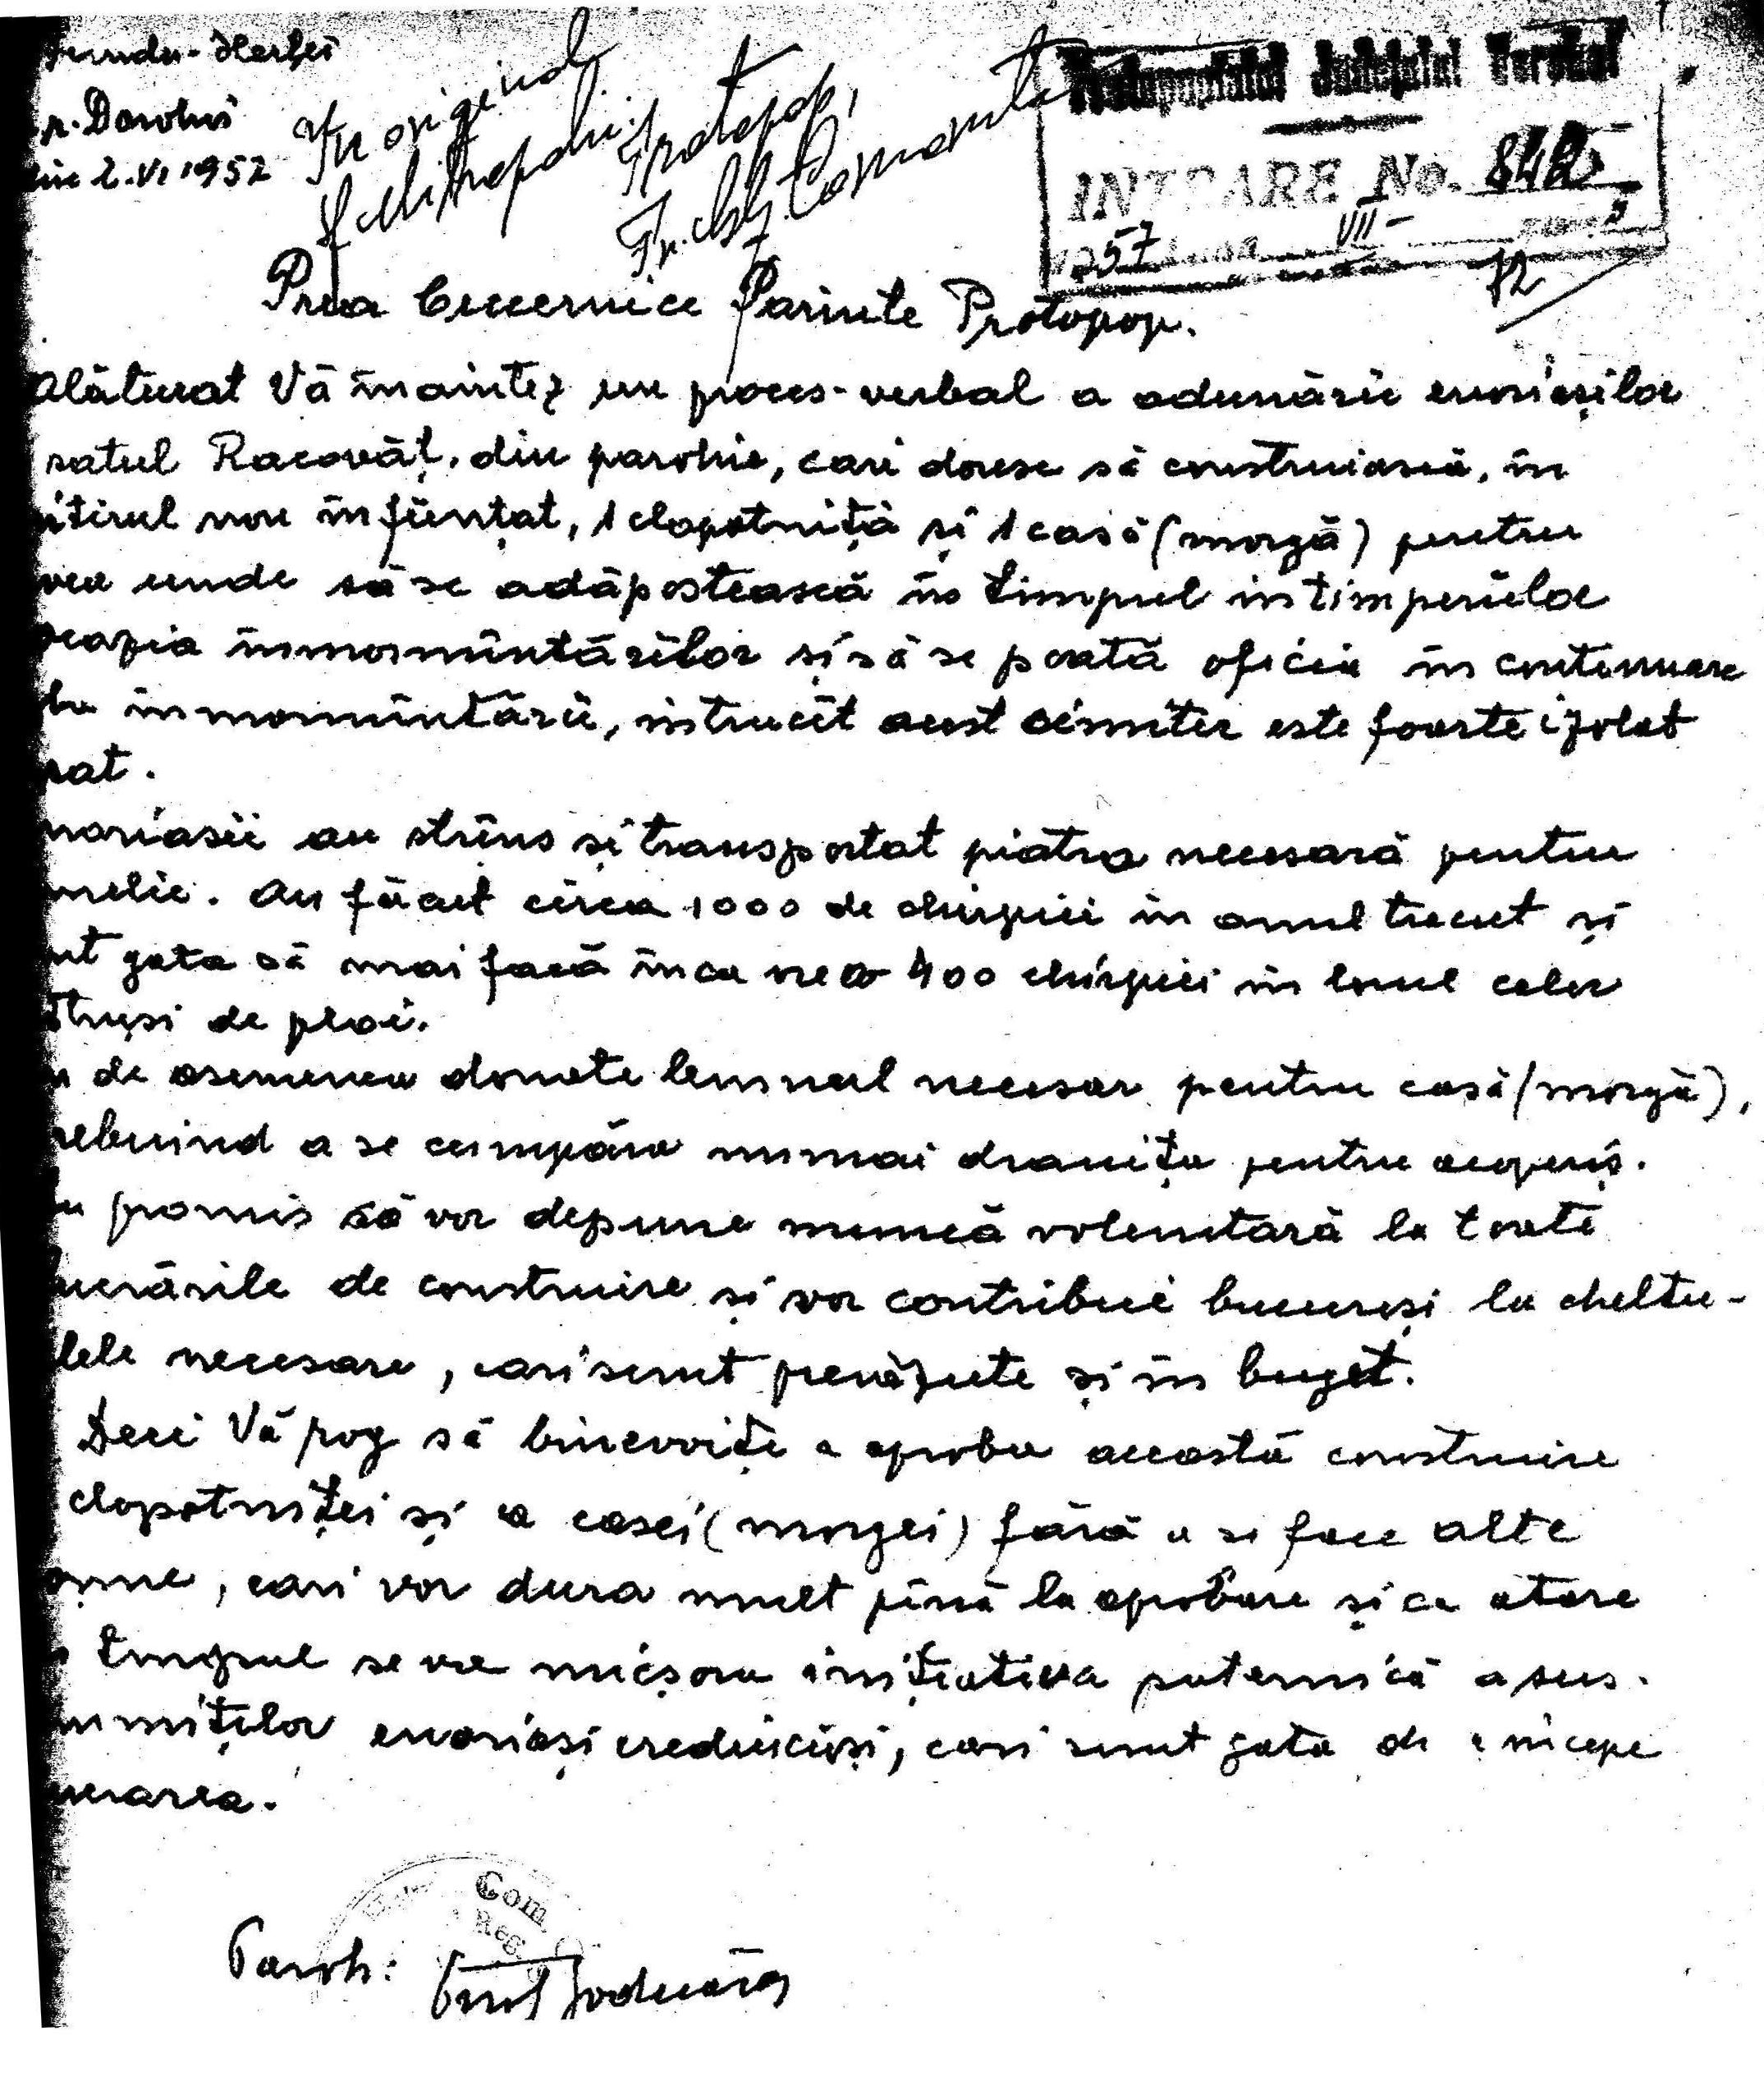 r. Dorohoi
din 2. VI 1957
În original
Protopop,
INTRARE No. 842
1957 VII
Prea Cucernice Părinte Protopop.
Alăturat Vă înaintez un proces-verbal a adunării enoriașilor
satul Racovăț, din parohie, cari doresc să construiască, în
itirul nou înființat, 1 clopotniță și 1 casă (morgă) pentru
vea unde să se adăpostească în timpul intimperiilor
cazia înmormîntărilor și să se poată oficia în continuare
ba înmormîntării, întrucît acest cimiter este foarte izolat
sat.
noriașii au strîns și transportat piatra necesară pentru
melie. Au făcut circa 1000 de chirpici în anul trecut și
nt gata să mai facă înca vreo 400 chirpici în locul celor
struși de ploi.
u de asemenea donate lemnul necesar pentru casă (morgă),
rebuind a se cumpăra numai dranița pentru acoperiș.
u promis că vor depune muncă voluntară la toate
ucrările de construire și vor contribui bucuroși la cheltu-
lele necesare, cari sunt prevăzute și în buget.
Deci Vă rog să binevoiți a aproba această construire
clopotniței și a casei (morgei) fără a se face alte
orme, cari vor dura mult pînă la aprobare și ca atare
timpul se va micșora inițiativa puternică a sus-
numiților enoriași credincioși, cari sunt gata de a începe
ucrarea.
Com.
Reg.
Paroh: